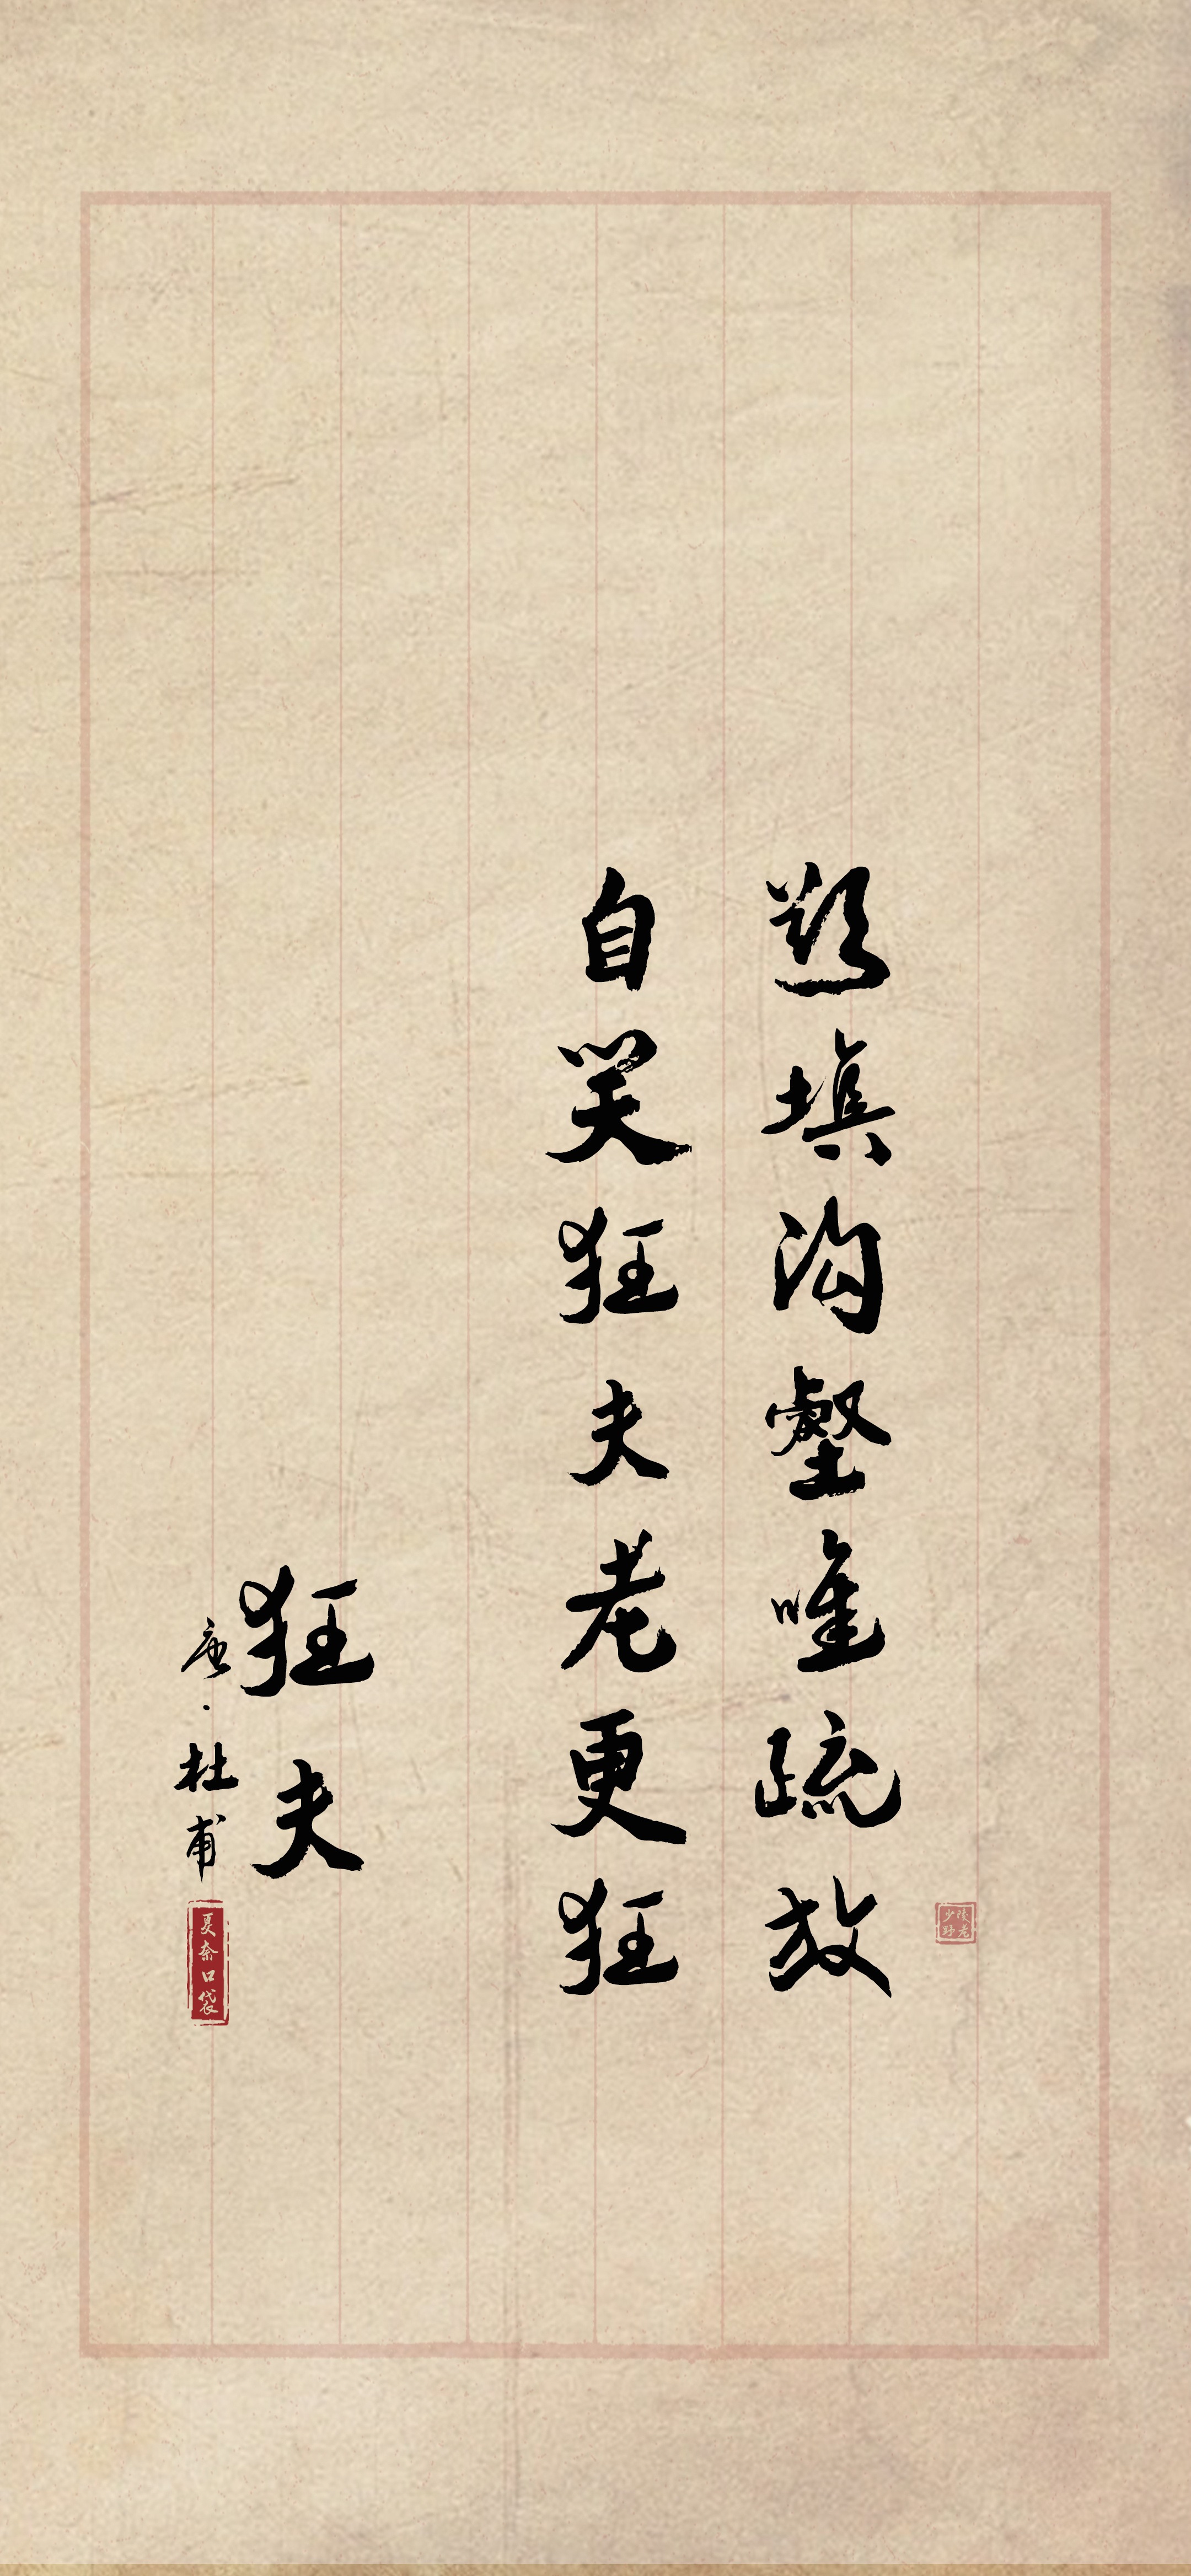 欲填沟壑唯疏放
自笑狂夫老更狂
狂夫
唐·杜甫
夏奈口袋
少陵野老